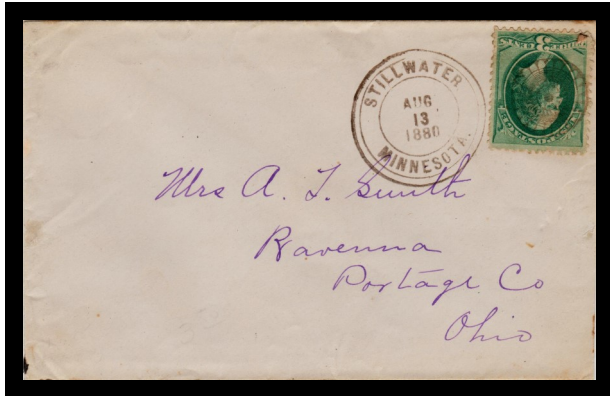 STILLWATER
AUG
13
1880
MINNESOTA.
Mrs A. T. Smith
Ravenna
Portage Co
Ohio